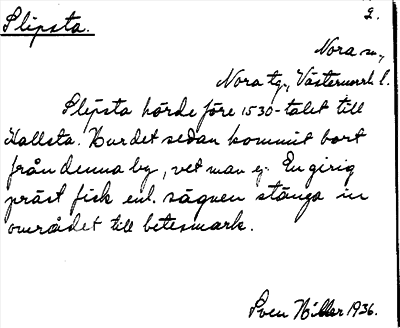 Slipsta.
2.
Nora sn,
Nora tg., Västernorrl. l.
Slipsta hörde före 1530-talet till
Hallsta. Hur det sedan kommit bort
från denna by, vet man ej. En girig
präst fick enl. sägnen stänga in
området till betesmark.
Sven Hiller 1936.